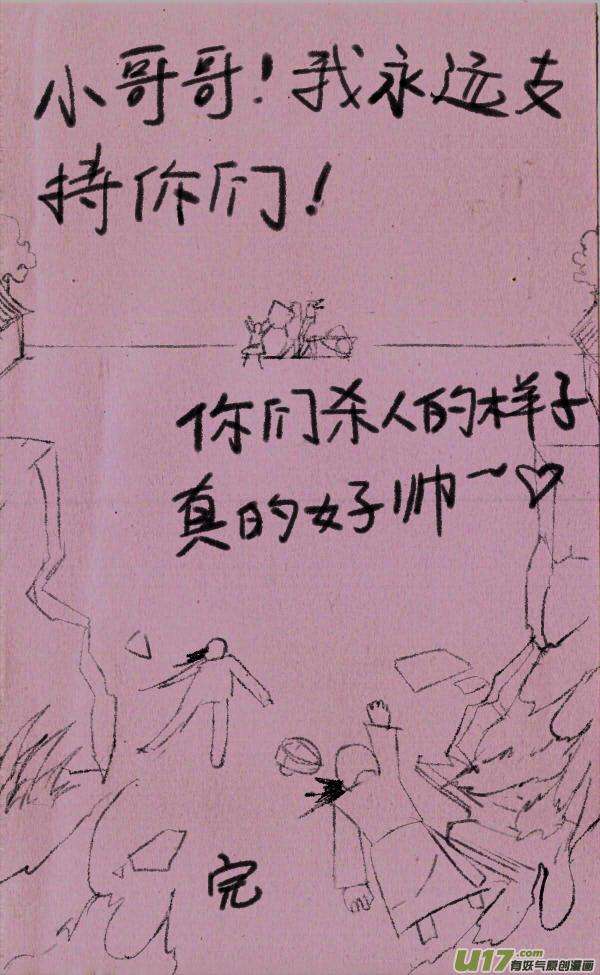 小哥哥!我永远支
持你们!
你们杀人的样子
真的好帅~♡
完
U17.com
有妖气原创漫画